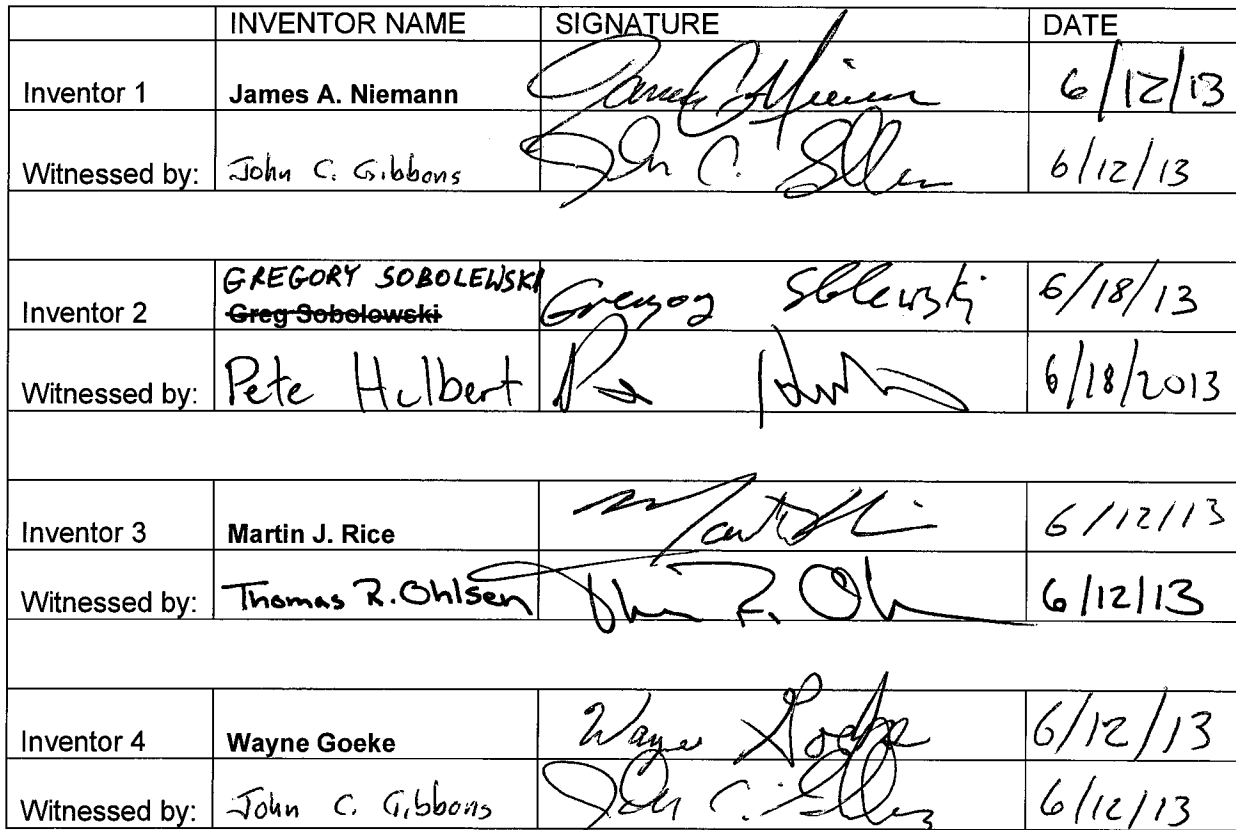 INVENTOR NAME SIGNATURE DATE
Inventor 1 James A. Niemann 6/12/13
Witnessed by: John C. Gibbons John C. 6/12/13
GREGORY SOBOLEWSKI
Inventor 2 Greg Sobolowski Gregory Soblewski 6/18/13
Witnessed by: Pete Hulbert 6/18/2013
Inventor 3 Martin J. Rice 6/12/13
Witnessed by: Thomas R. Ohlsen 6/12/13
Inventor 4 Wayne Goeke Wayne Goeke 6/12/13
Witnessed by: John C. Gibbons John C. 6/12/13